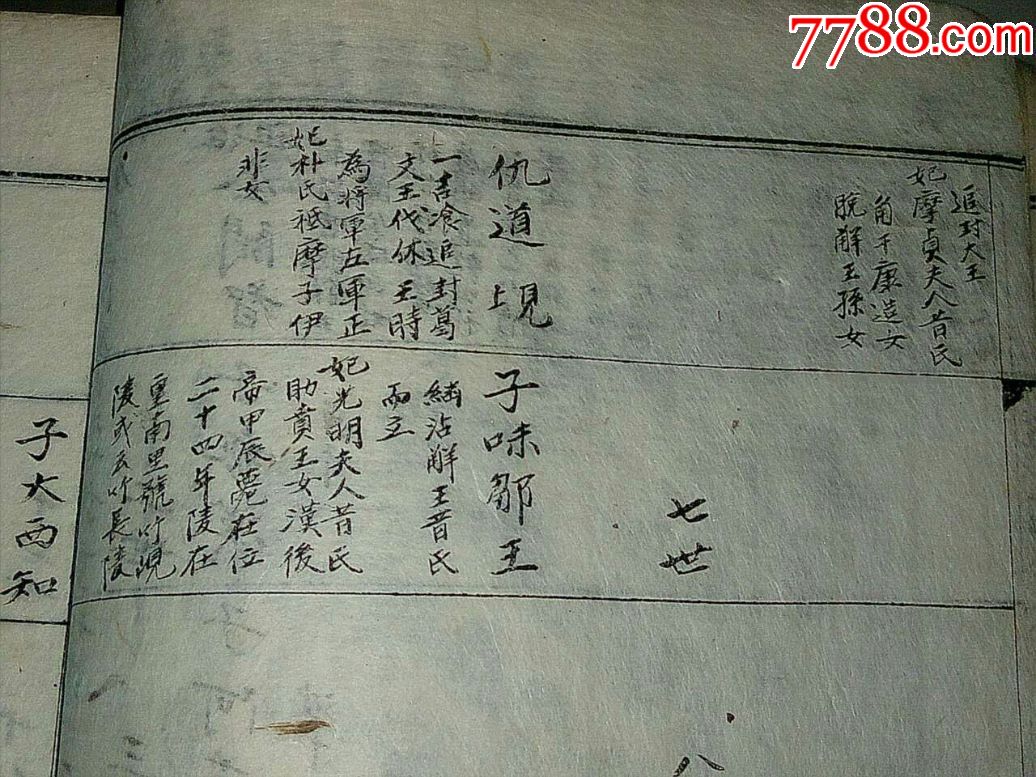 7788.com
追封大王
妃摩貞夫人昔氏
角干康造女
脫解王孫女
仇道
一吉飡追封葛
文王代休王時
為將軍左軍正
妃朴氏祗摩子伊
非女
七世
子味鄒王
繼沾解王昔氏
而立
妃光明夫人昔氏
助賁王女漢後
帝甲辰薨在位
二十四年陵在
里號竹
陵或云竹長陵
子大西知
八